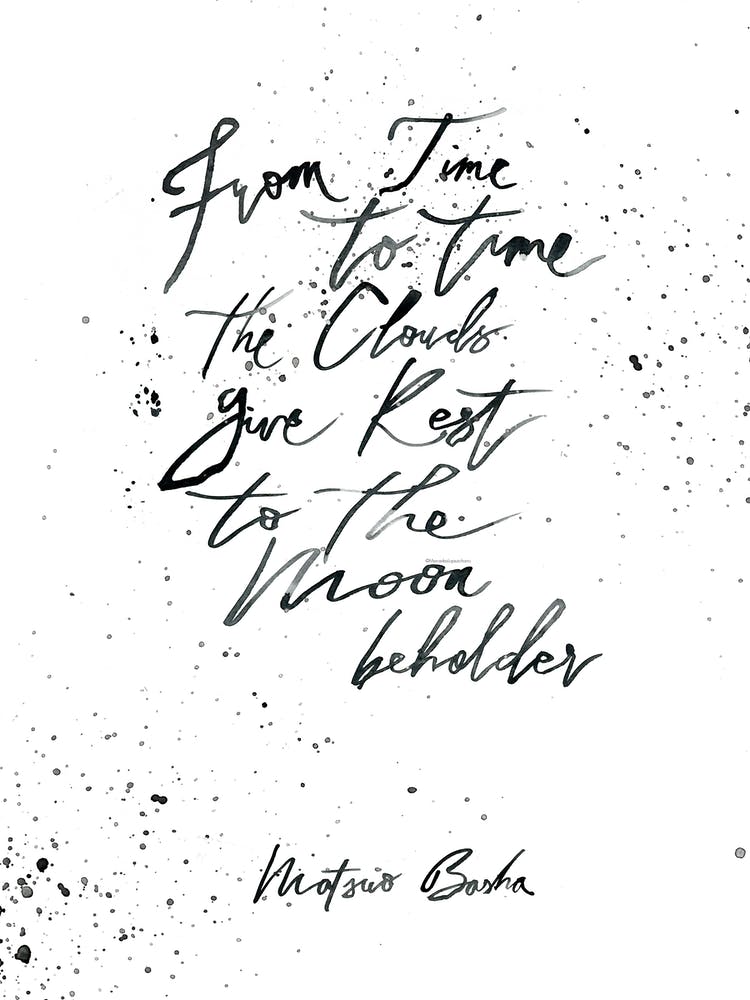 From Time
to time
the Clouds
give Rest
to the
Moon
beholder
Matsuo Basha